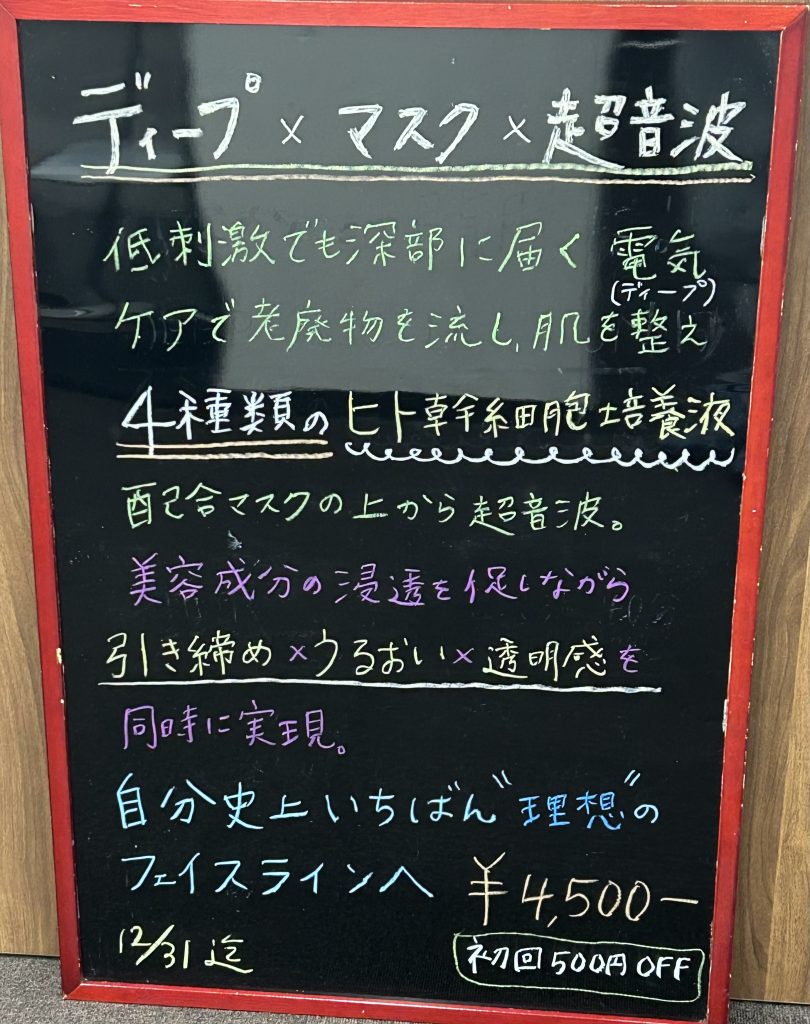 ディープ × マスク × 超音波
低刺激でも深部に届く 電気
(ディープ)
ケアで老廃物を流し、肌を整え
4種類の ヒト幹細胞培養液
配合マスクの上から超音波。
美容成分の浸透を促しながら
引き締め×うるおい×透明感を
同時に実現。
自分史上いちばん"理想"の
フェイスラインへ
¥4,500－
12/31迄
初回500円OFF